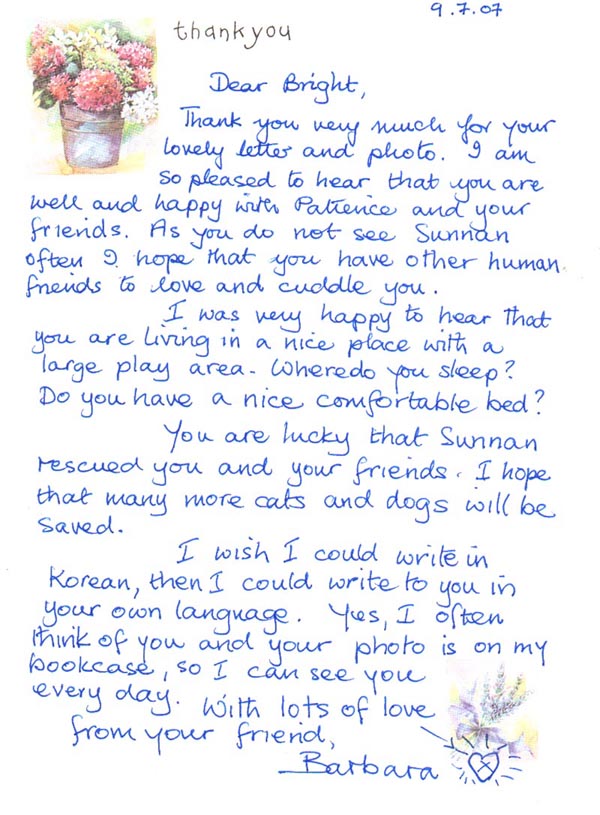 9.7.07
thankyou
Dear Bright,
Thank you very much for your
lovely letter and photo. I am
so pleased to hear that you are
well and happy with Patience and your
friends. As you do not see Sunnan
often I hope that you have other human
friends to love and cuddle you.
I was very happy to hear that
you are living in a nice place with a
large play area. Where do you sleep?
Do you have a nice comfortable bed?
You are lucky that Sunnan
rescued you and your friends. I hope
that many more cats and dogs will be
saved.
I wish I could write in
Korean, then I could write to you in
your own language. Yes, I often
think of you and your photo is on my
bookcase, so I can see you
every day. With lots of love
from your friend,
Barbara
x